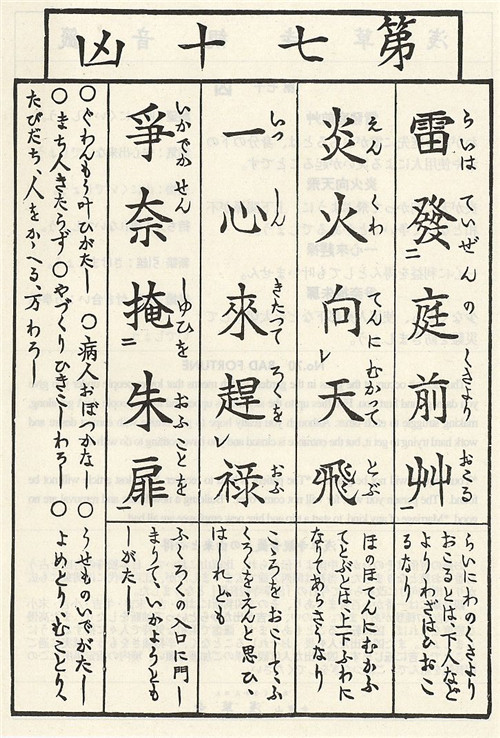 第七十凶
らいは ていぜん の くさより おこる
雷發二庭前艸一
えん くわ てんに むかつて とぶ
炎火向レ天飛
いつ しん きたつて ろくを おふ
一心來趕レ禄
いかでか せん しゆひを おふことを
爭奈掩二朱扉一
らいにわのくさより
おこことは、下人など
よりわざはひおこ
るなり
ほのほてんにむかふ
てとぶとは、上下ふわに
なりてあらさうなり
こゝろをおこしてふ
くろくをえんと思ひ、
はしれども
ふくろくの入口に門し
まりて、いかふよりとも
しがたし
○ぐわんも叶ひがたし ○病人おぼつかな ○うせものいでがたし
○まち人きたらず ○やづくりひきこしわろし ○よめとり、むことり、
たびだち、人をかゝへる、万わろし